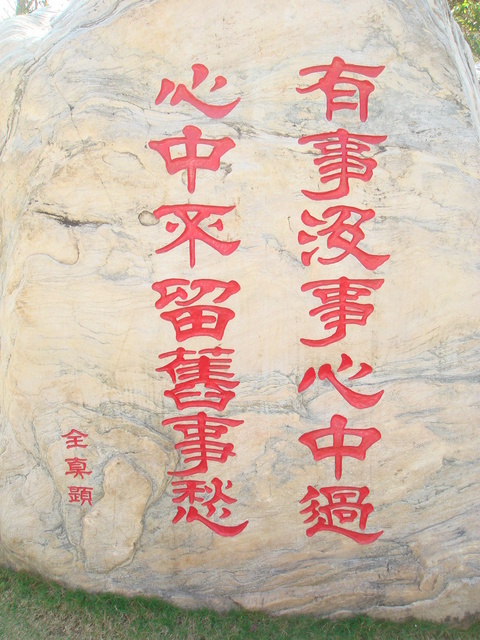 有事没事心中過
心中不留舊事愁
全真題